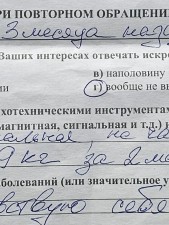 РИ ПОВТОРНОМ ОБРАЩЕНИ
3 месяца наза
Ваших интересах отвечать искр
в) наполовину
ии
г) вообще не вы
хотехническими инструментам
магнитная, сигнальная и т.д.) п
9 кг за 2 ме
болеваний (или значительное у
вствую себя